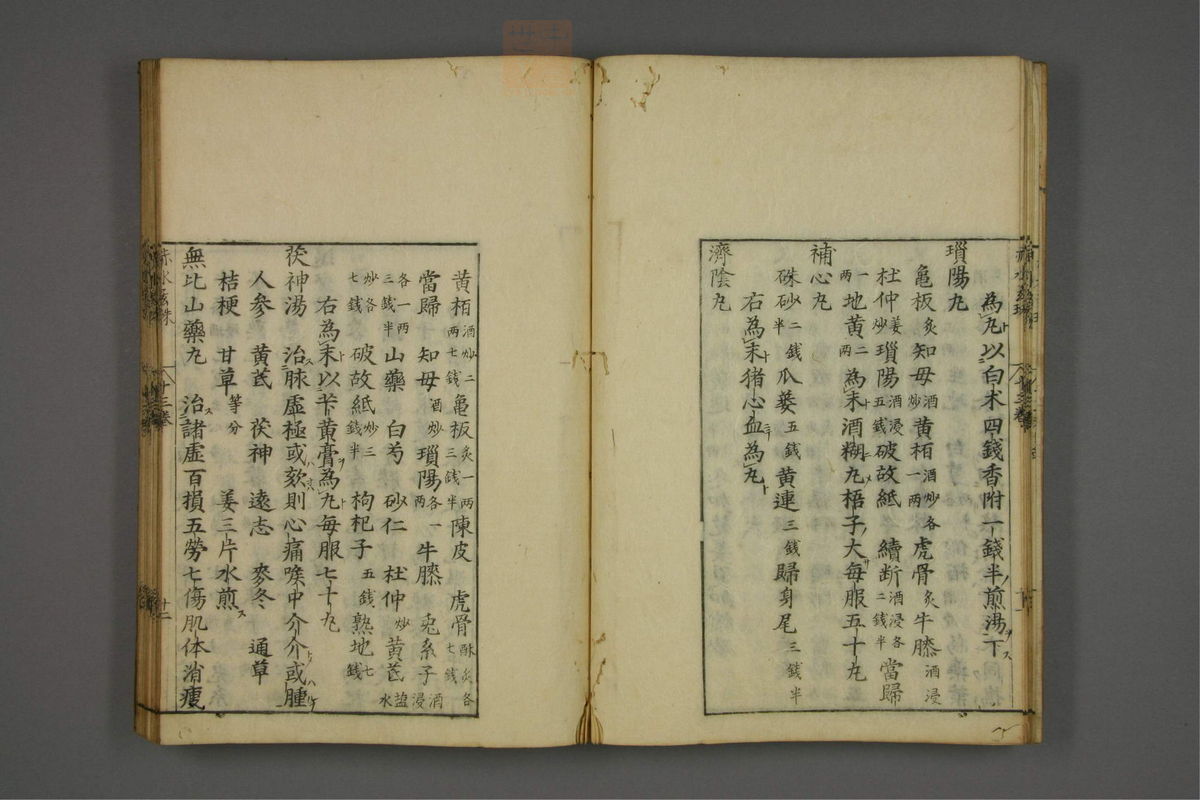 為丸以白朮四錢香附一錢半煎湯下
瑣陽丸
龜板炙知母酒炒黃栢酒炒各一兩虎骨炙牛膝酒浸
杜仲姜炒瑣陽酒浸五錢破故紙續断酒浸各二錢半當歸
一兩地黃二兩為末酒糊丸梧子大每服五十丸
補心丸
硃砂二錢半瓜蔞五錢黃連三錢歸身尾三錢半
右為末猪心血為丸
濟陰丸
黃栢酒炒二兩七錢龜板炙一兩三錢半陳皮虎骨酥炙各七錢
當歸 知母酒炒瑣陽各一兩牛膝 兎糸子酒浸
各一兩三錢半山藥 白芍 砂仁 杜仲炒黃芪盐水
炒各七錢破故紙炒三錢半枸杞子五錢熟地七錢
右為末以苄黃膏為丸每服七十丸
茯神湯 治脉虛極或欬則心痛喉中介介或腫
人参 黃芪 茯神 遠志 麥冬 通草
桔梗 甘草等分 姜三片水煎
無比山藥丸 治諸虛百損五勞七傷肌体消瘦
赤水玄珠
十三卷
十二